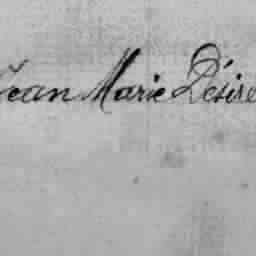 Jean Marie Désiré